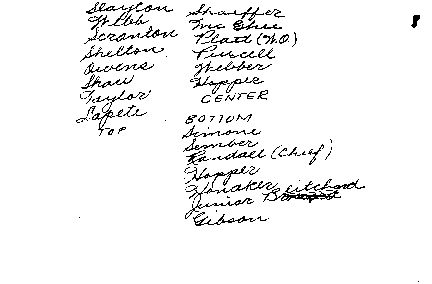 Slayton
Webb
Scranton
Shelton
Owens
Shaw
Taylor
Lapete
TOP
Shaeffer
Mc Ghee
Platt (W.O.)
Purcell
Webber
Hopper
CENTER
BOTTOM
Simone
Sember
Randall (Chief)
Hopper
Honaker
Junior Pritchard
Gibson